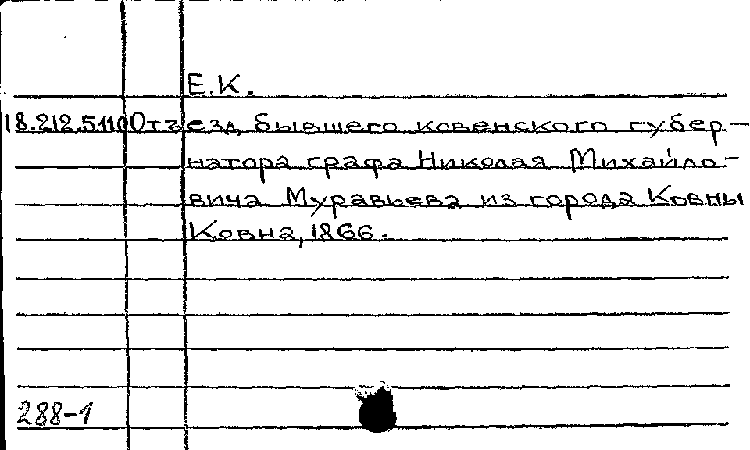 Е.К.
18.212.5.110 Отъезд бывшего ковенского губер-
натора графа Николая Михайло-
вича Муравьева из города Ковны
Ковна, 1866.
288-1